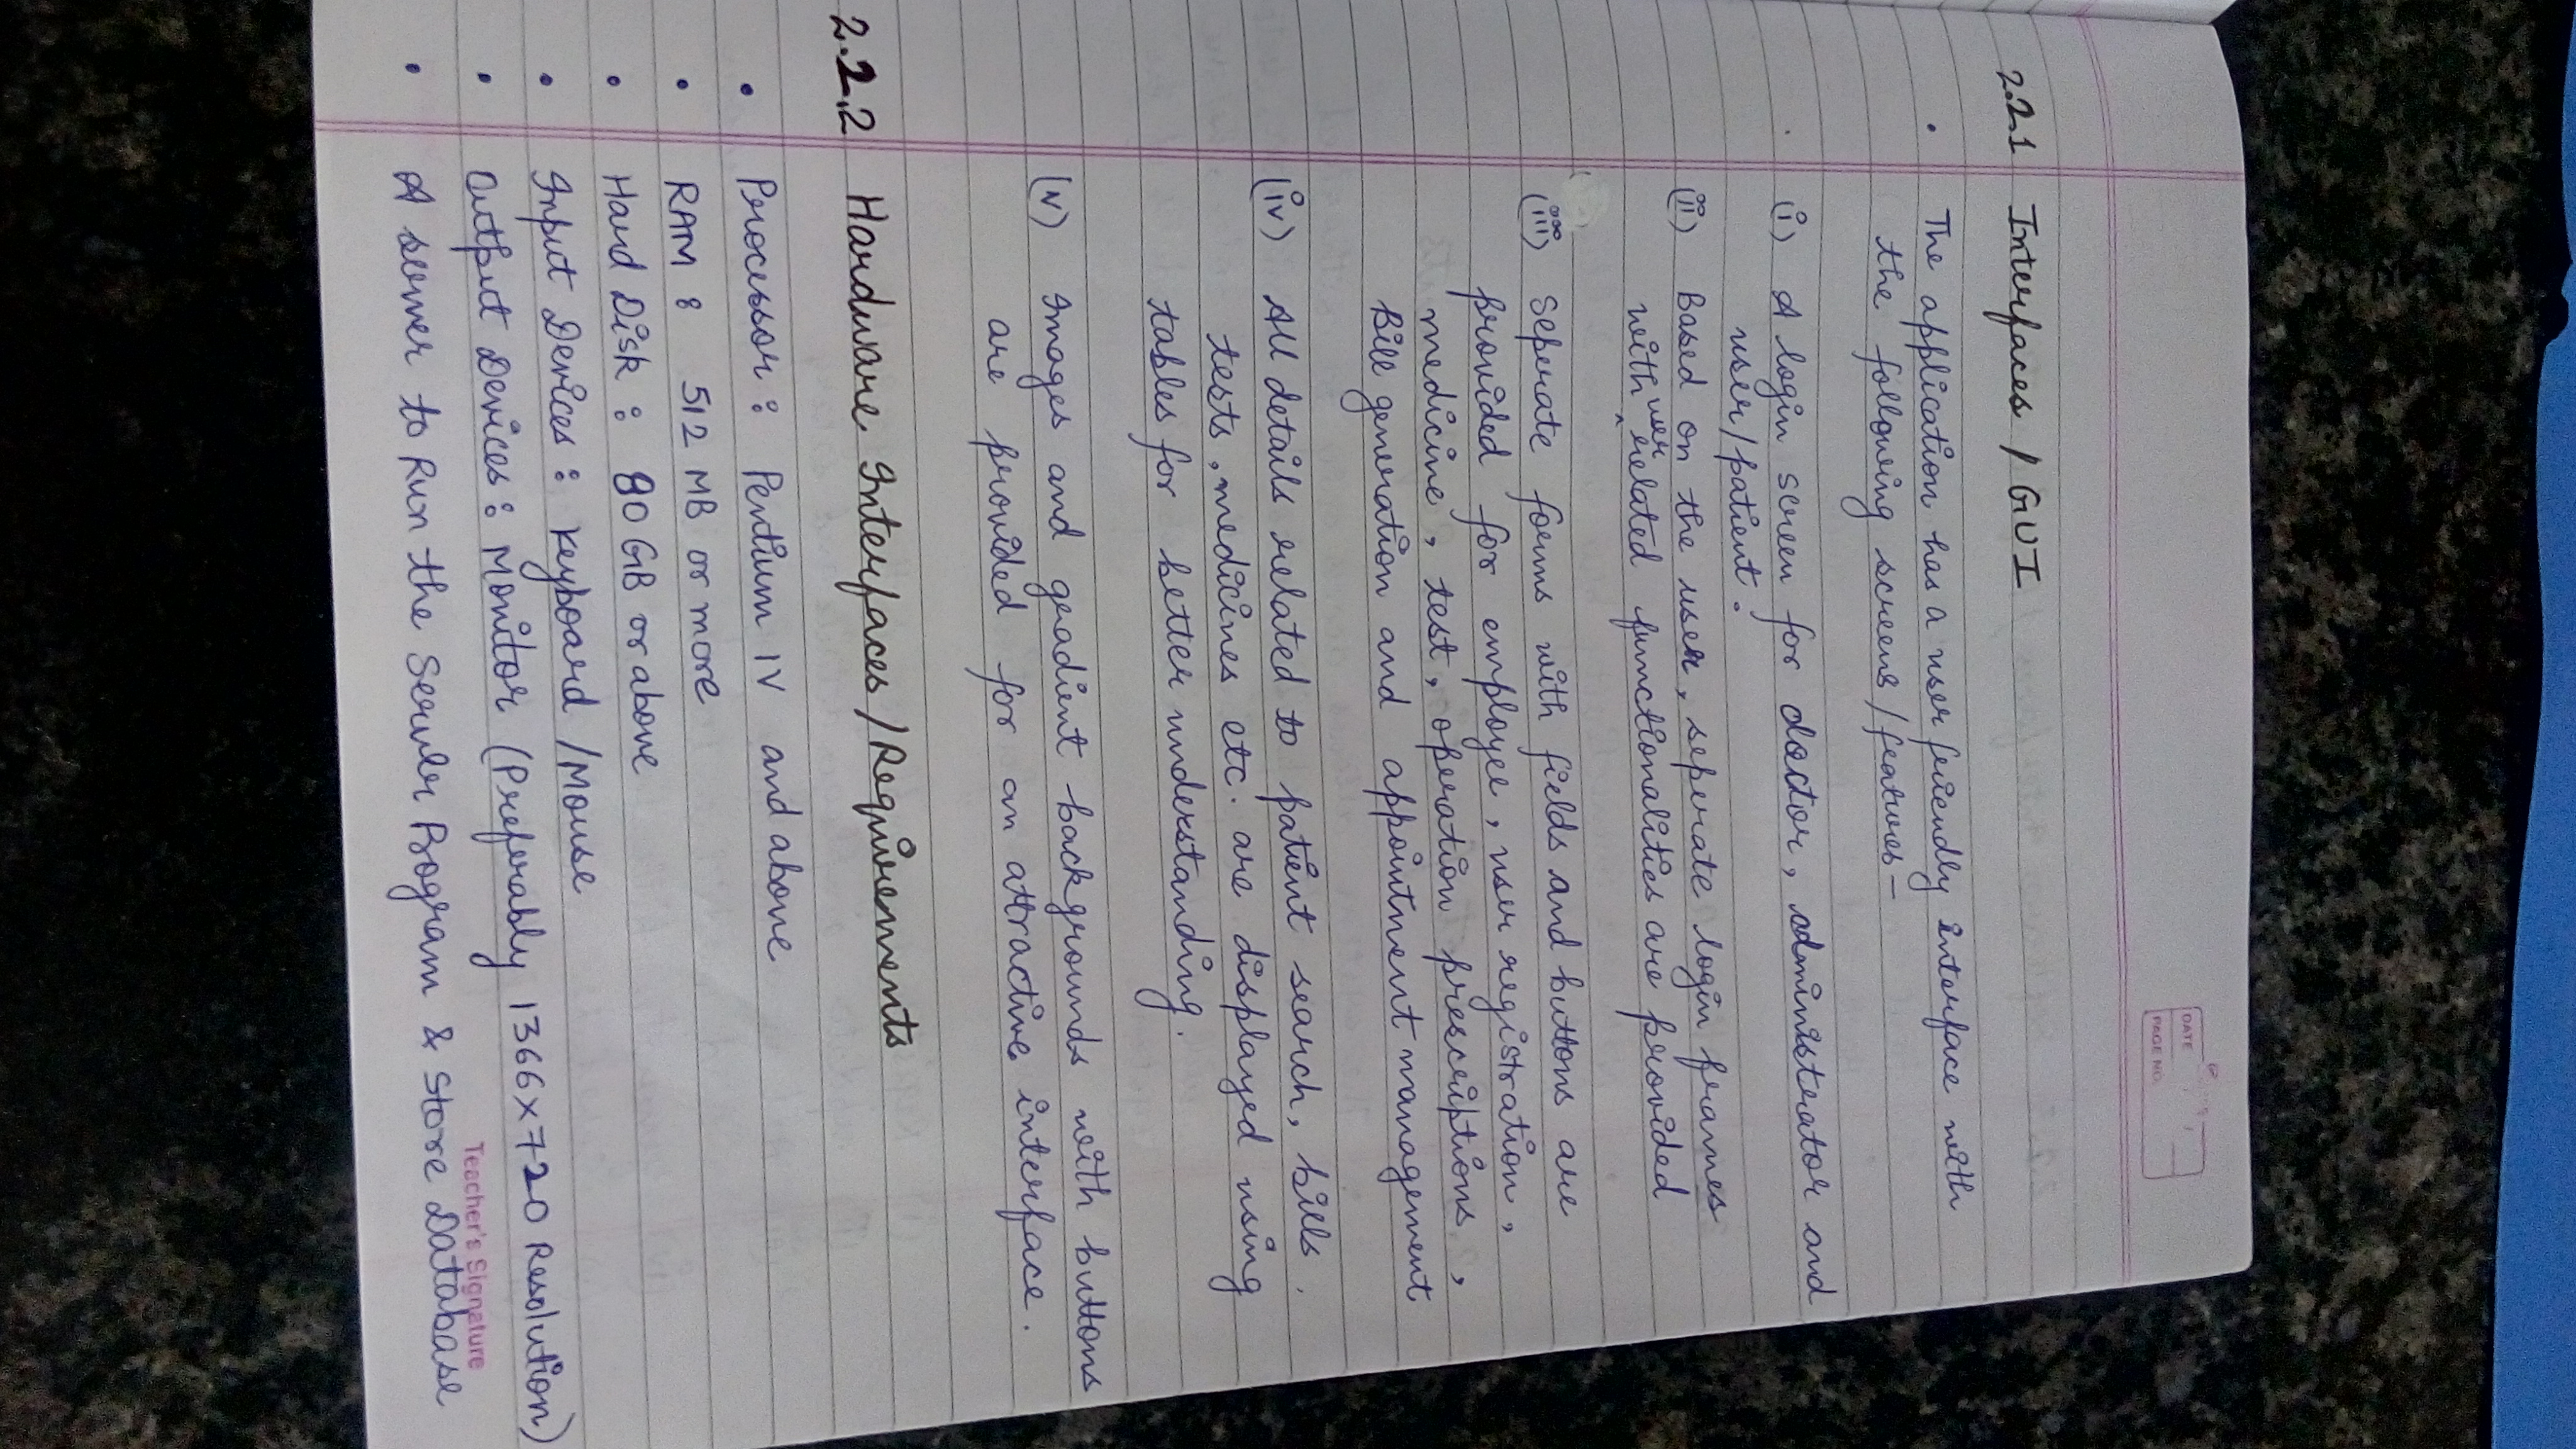 DATE
PAGE NO.
2.2.1 Interfaces / GUI
• The application has a user friendly interface with
the following screens / features —
(i) A login screen for doctor, administrator and
user/patient.
(ii) Based on the user, seperate login frames
with user related functionalities are provided
(iii) Seperate forms with fields and buttons are
provided for employee, user registration,
medicine, test, operation prescriptions,
Bill generation and appointment management
(iv) All details related to patient search, bills,
tests, medicines etc. are displayed using
tables for better understanding.
(v) Images and gradient backgrounds with buttons
are provided for an attractive interface.
2.2.2 Hardware Interfaces / Requirements
• Processor: Pentium IV and above
• RAM: 512 MB or more
• Hard Disk: 80 GB or above
• Input Devices: Keyboard / Mouse
• Output Devices: Monitor (Preferably 1366x720 Resolution)
Teacher's Signature
• A server to Run the Server Program & Store Database